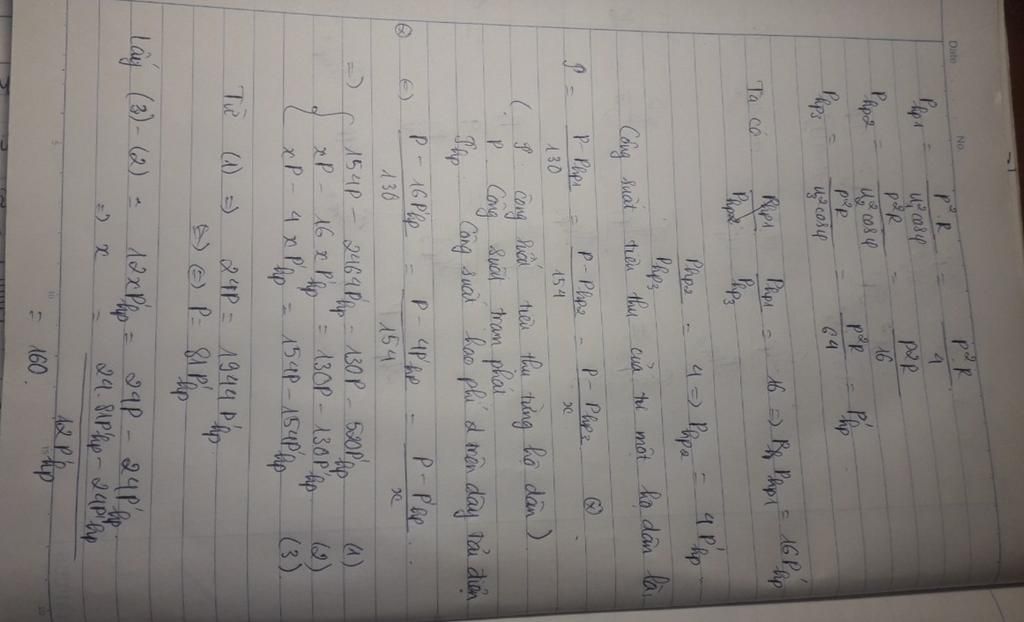 Date No.
P_hp1 = P².R / U₁²cosφ = P².R / 4
P_hp2 = P²R / U₂²cosφ = P²R / 16
P_hp3 = P²R / U₃²cosφ = P²R / 64 = P'hp
Ta có P_hp1 / P_hp3 = 16 => P_hp1 = 16P'hp
P_hp2 / P_hp3 = 4 => P_hp2 = 4P'hp
Công suất tiêu thụ của từ một hộ dân là
P = (P - P_hp1) / 130 = (P - P_hp2) / 154 = (P - P_hp3) / x (2)
( P: công suất tiêu thụ từng hộ dân )
P Công suất trạm phát
P_hp Công suất hao phí trên dây tải điện
(2) (=) (P - 16P'hp) / 130 = (P - 4P'hp) / 154 = (P - P'hp) / x
=> { 154P - 2464P'hp = 130P - 520P'hp (1)
xP - 16xP'hp = 130P - 130P'hp (2)
xP - 4xP'hp = 154P - 154P'hp (3)
Từ (1) => 24P = 1944P'hp
(=) P = 81P'hp
Lấy (3) - (2) = 12xP'hp = 24P - 24P'hp
=> x = (24.81P'hp - 24P'hp) / 12P'hp
= 160.